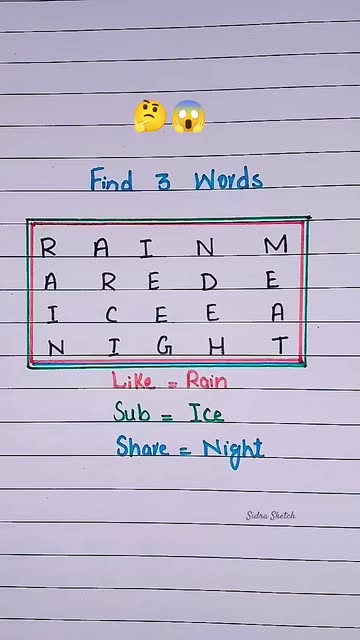 Find 3 Words
R A I N M
A R E D E
I C E E A
N I G H T
Like = Rain
Sub = Ice
Share = Night
Sidra Sketch